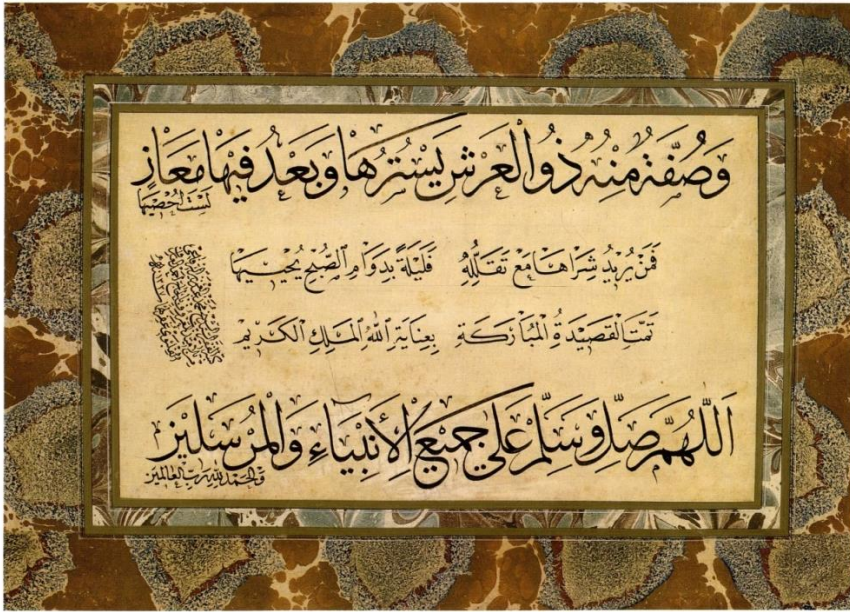 وَصُفَّةٌ مِنْهُ ذُو الْعَرْشِ يَسْتُرُهَا وَبَعْدُ فِيهَا مَعَازٍ
لَسْتُ اُحْصِيهَا
فَمَنْ يُرِيدُ شِرَاهَا مَعْ تَقَلُّلِهِ فَلَيْلَةً بِدَوَامِ الصُّبْحِ يُحْيِيهَا
تَمَّتِ الْقَصِيدَةُ الْمُبَارَكَةُ بِعِنَايَةِ اللّٰهِ الْمَلِكِ الْكَرِيمِ
اَللّٰهُمَّ صَلِّ وَسَلِّمْ عَلَى جَمِيعِ الْأَنْبِيَاءِ وَالْمُرْسَلِينَ
وَالْحَمْدُ لِلّٰهِ رَبِّ الْعَالَمِينَ